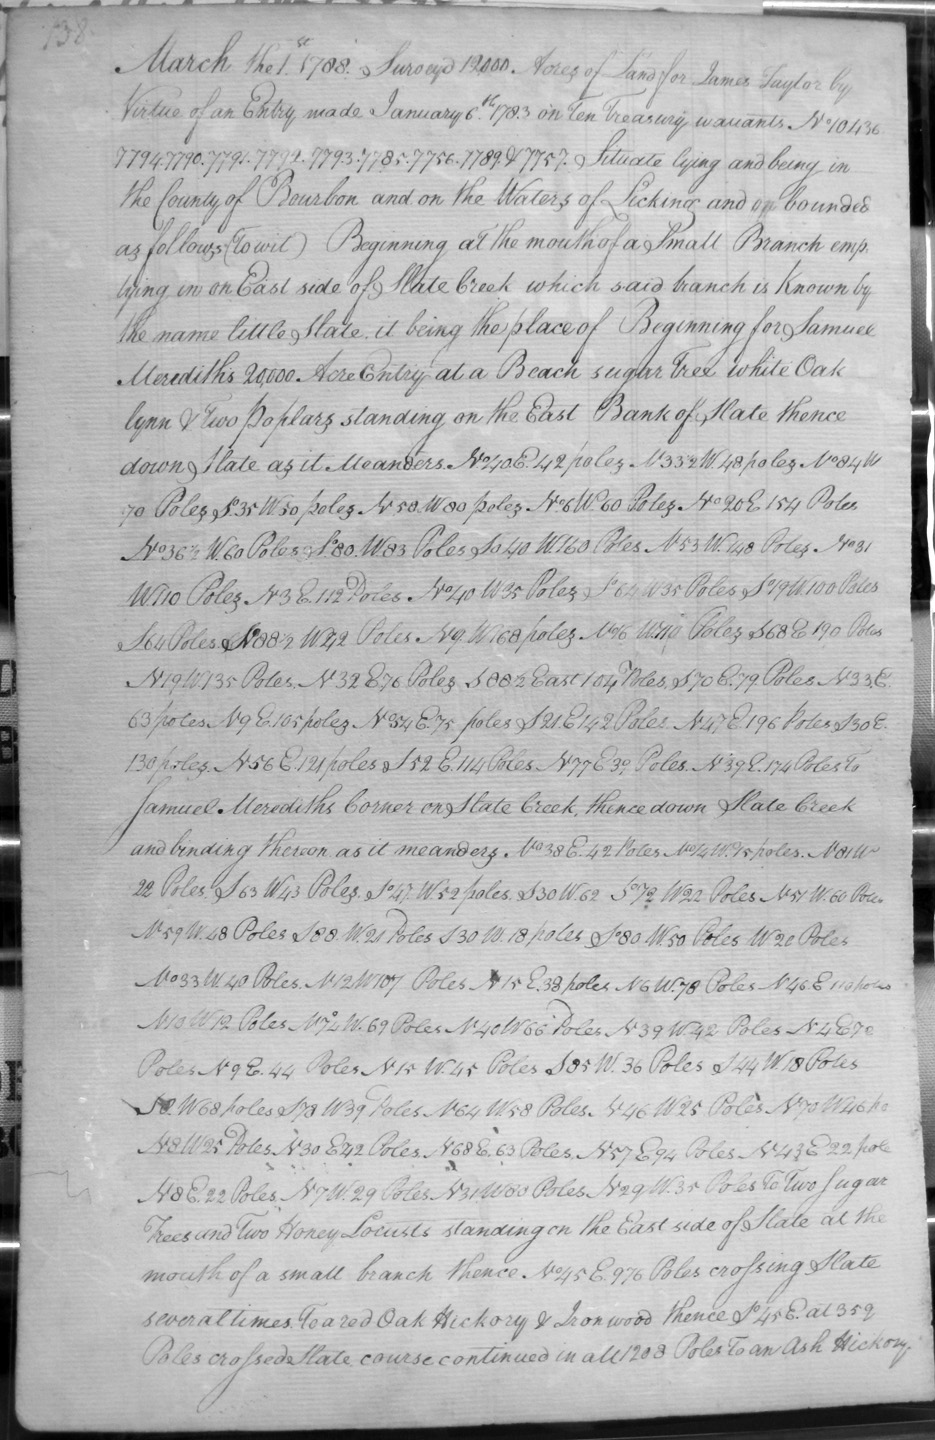 138
March the 1.st 1788. Survey'd 12000. Acres of Land for James Taylor by
Virtue of an Entry made January 6.th 1783 on Ten Treasury warrants No 10436
7794.7790.7791.7792.7793.7785.7756.7789.& 7757. Situate lying and being in
the County of Bourbon and on the Waters of Licking and bounded
as follows (Towit) Beginning at the mouth of a Small Branch emp.
tying in on East side of Slate Creek which said branch is Known by
the name little Slate. it being the place of Beginning for Samuel
Merediths 20,000. Acre Entry at a Beach sugar Tree white Oak
lynn & Two Poplars standing on the East Bank of Slate thence
down Slate as it Meanders No 40 E. 42 poles N 33½ W. 48 poles No 84 W
70 Poles So 35 W 50 poles N 58. W 80 poles No 6 W. 60 Poles No 20 E 154 Poles
No 36½ W. 60 Poles So 80. W 83 Poles So 40 W. 160 Poles N 53 W. 148 Poles No 31
W 110 Poles N 3 E. 112 Poles No 40 W 35 Poles So 64 W 35 Poles So 19 W. 100 Poles
S 64 Poles So 88½ W. 42 Poles N 9 W. 168 poles No 16 W. Poles S 68 E 190 Poles
N 19 W 135 Poles. N 32 E 76 Poles S 88½ East 104 Poles, S 70 E. 79 Poles N 33 E.
63 poles N 9 E. 105 poles No 34 E. 75 poles S 21 E 142 Poles N 47 E 196 Poles S 30 E.
130 poles. N 56 E. 121 poles S 52 E. 114 Poles N 77 E 39 Poles. N 39 E. 174 Poles To
Samuel Merediths Corner on Slate Creek, thence down Slate Creek
and binding thereon as it meanders No 38 E. 42 Poles No 14 W. 95 poles. N 81 W
22 Poles. S 63 W 43 Poles. So 47. W. 52 poles. S 30 W. 62 So 72 W 22 Poles N 51 W. 60 Poles
N 59 W. 48 Poles S 88. W. 21 Poles S 30 W. 18 poles So 80 W. 50 Poles W 20 Poles
No 33 W. 40 Poles. N 12 W 107 Poles N 15 E. 38 poles N 6 W. 78 Poles N 46 E 110 poles
N 10 W 12 Poles N 74 W. 69 Poles N 40 W 66 Poles N 39 W. 42 Poles N 4 E 70
Poles N 9 E. 44 Poles N 15 W. 45 Poles S 85 W. 36 Poles S 44 W. 18 Poles
S 8. W 68 poles S 78 W 39 Poles N 64 W 58 Poles. N 46 W 25 Poles N 70 W 46 po
N 8 W 25 Poles N 30 E 42 Poles N 68 E. 63 Poles. N 57 E 94 Poles N 43 E 22 pole
N 8 E. 22 Poles N 7 W. 29 Poles N 31 W 80 Poles. N 29 W. 35 Poles To Two Sugar
Trees and Two Honey Locusts standing on the East side of Slate at the
mouth of a small branch thence No 45 E. 976 Poles crossing Slate
several times To a red Oak Hickory & Ironwood thence So 45 E. at 359
Poles crossed Slate course continued in all 1208 Poles To an Ash Hickory.